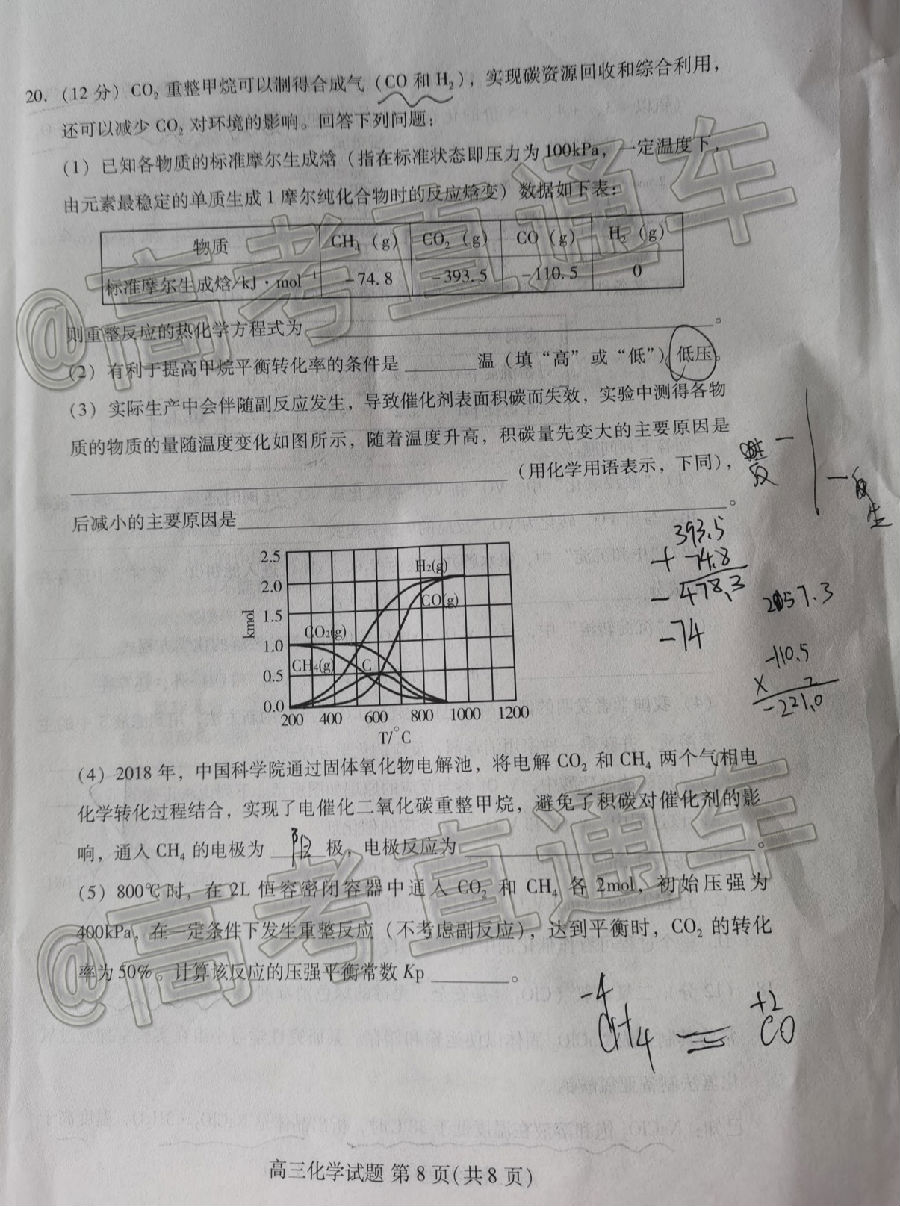 20. (12 分) CO₂ 重整甲烷可以制得合成气(CO 和 H₂),实现碳资源回收和综合利用,
还可以减少 CO₂ 对环境的影响。回答下列问题:
(1) 已知各物质的标准摩尔生成焓(指在标准状态即压力为 100kPa,一定温度下,
由元素最稳定的单质生成 1 摩尔纯化合物时的反应焓变)数据如下表:
物质 CH₄(g) CO₂(g) CO(g) H₂(g)
标准摩尔生成焓/kJ·mol⁻¹ -74.8 -393.5 -110.5 0
则重整反应的热化学方程式为________。
(2) 有利于提高甲烷平衡转化率的条件是________温(填“高”或“低”)低压。
(3) 实际生产中会伴随副反应发生,导致催化剂表面积碳而失效,实验中测得各物
质的物质的量随温度变化如图所示,随着温度升高,积碳量先变大的主要原因是
________(用化学用语表示,下同),
后减小的主要原因是________。
393.5
+ 74.8
- 478.3
-74
2157.3
-110.5
× 2
-221.0
2.5
2.0
1.5
1.0
0.5
0.0
kmol
H₂(g)
CO(g)
CO₂(g)
CH₄(g)
C
200 400 600 800 1000 1200
T/°C
(4) 2018 年,中国科学院通过固体氧化物电解池,将电解 CO₂ 和 CH₄ 两个气相电
化学转化过程结合,实现了电催化二氧化碳重整甲烷,避免了积碳对催化剂的影
响,通入 CH₄ 的电极为 阳 极,电极反应为________。
(5) 800℃时,在 2L 恒容密闭容器中通入 CO₂ 和 CH₄ 各 2mol,初始压强为
400kPa,在一定条件下发生重整反应(不考虑副反应),达到平衡时,CO₂ 的转化
率为 50%。计算该反应的压强平衡常数 Kp________。
-4 +2
CH₄ = CO
高三化学试题 第 8 页(共 8 页)
@高考直通车
@高考直通车